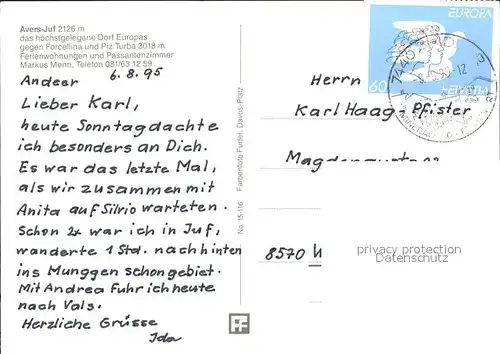 Avers-Juf 2126 m
das höchstgelegene Dorf Europas
gegen Forcellina und Piz Turba 3018 m
Ferienwohnungen und Passantenzimmer
Markus Menn, Telefon 081/63 12 59
Andeer 6.8.95
Lieber Karl,
heute Sonntag dachte
ich besonders an Dich.
Es war das letzte Mal,
als wir zusammen mit
Anita auf Silvio warteten.
Schon 2x war ich in Juf,
wanderte 1 Std. nach hinten
ins Munggenschongebiet.
Mit Andrea Fuhr ich heute
nach Vals.
Herzliche Grüsse
Ida
No. 15-116 Farbenfoto Furter, Davos-Platz
FF
EUROPA
60
HELVETIA
7440
Herrn
Karl Haag-Pfister
8570
privacy protection
Datenschutz